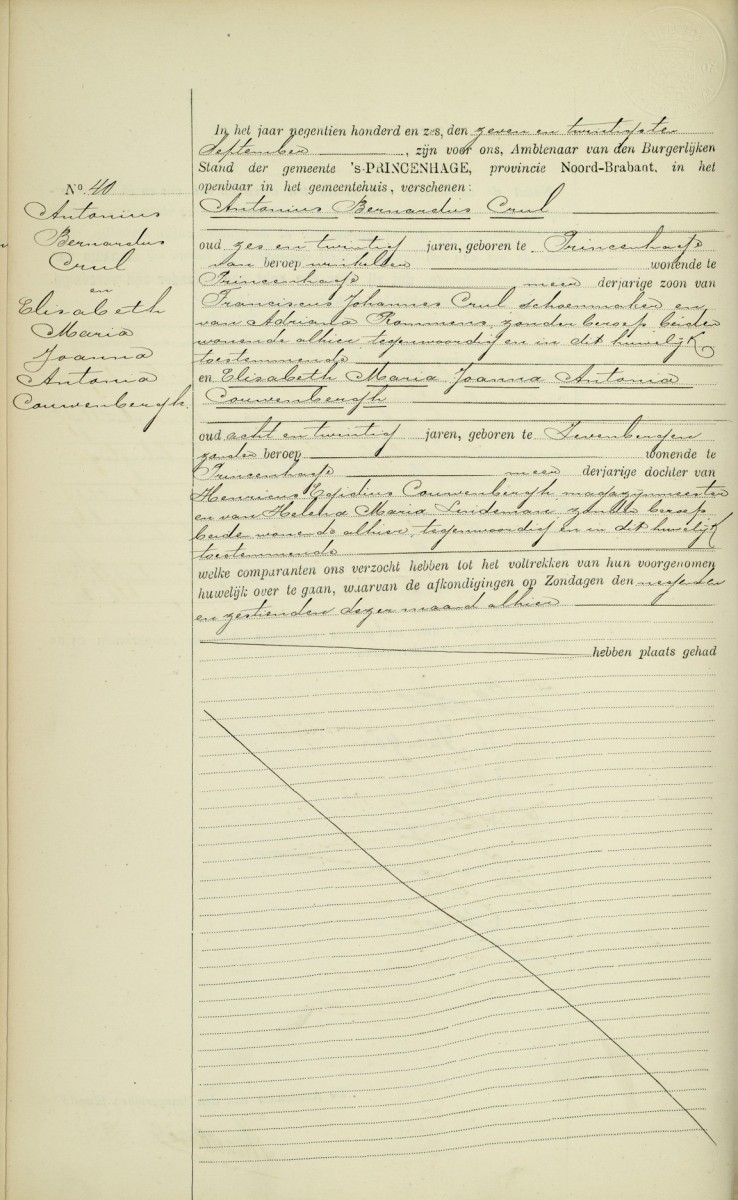 No. 40
Antonius
Bernardus
Crul
en
Elisabeth
Maria
Joanna
Antonia
Couwenbergh.
In het jaar negentien honderd en zes, den zeven en twintigsten
September, zijn voor ons, Ambtenaar van den Burgerlijken
Stand der gemeente 's-PRINCENHAGE, provincie Noord-Brabant, in het
openbaar in het gemeentehuis, verschenen:
Antonius Bernardus Crul
oud zes en twintig jaren, geboren te Princenhage
van beroep winkelier wonende te
Princenhage meer derjarige zoon van
Franciscus Johannes Crul schoenmaker en
van Adriana Rommens, zonder beroep beiden
wonende alhier tegenwoordig en in dit huwelijk
toestemmende
en Elisabeth Maria Joanna Antonia
Couwenbergh
oud acht en twintig jaren, geboren te Zevenbergen
zonder beroep wonende te
Princenhage meer derjarige dochter van
Henricus Egidius Couwenbergh magazijnmeester
en van Helena Maria Lindeman, zonder beroep
beiden wonende alhier, tegenwoordig en in dit huwelijk
toestemmende
welke comparanten ons verzocht hebben tot het voltrekken van hun voorgenomen
huwelijk over te gaan, waarvan de afkondigingen op Zondagen den negenden
en zestienden dezer maand alhier
hebben plaats gehad